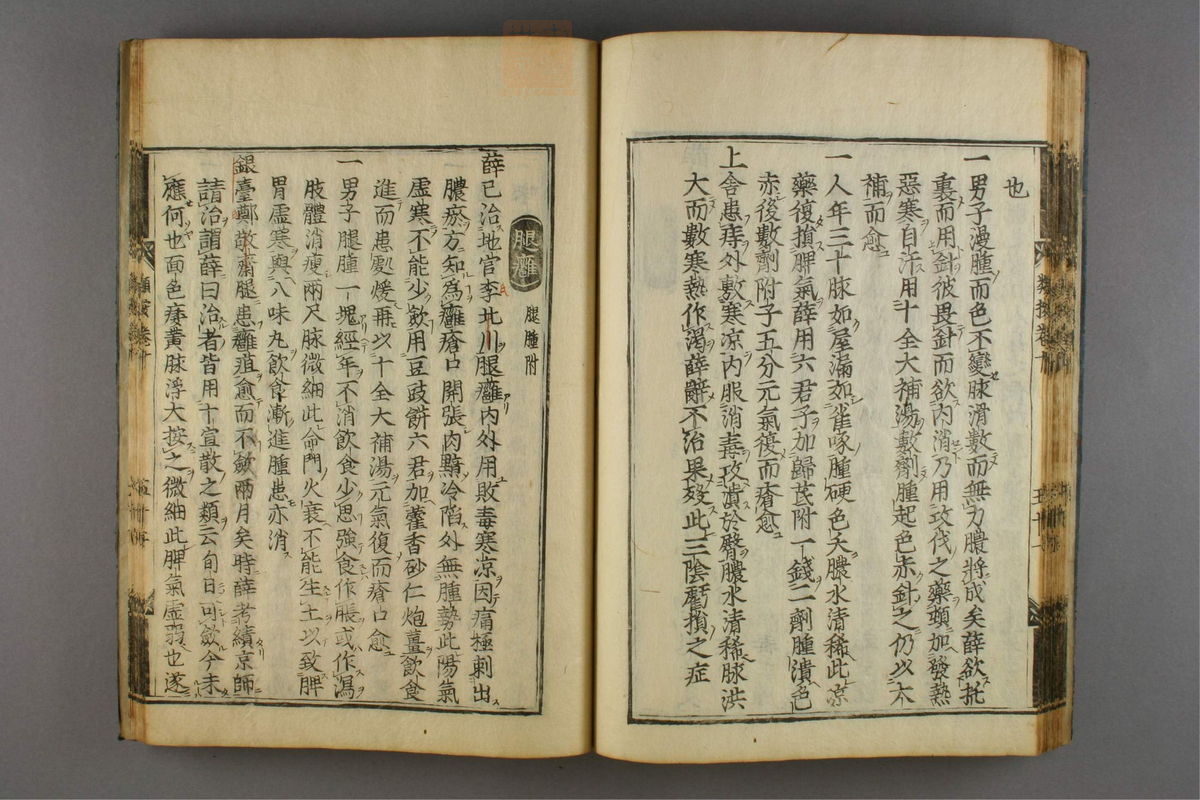 也
一男子漫腫而色不變脉滑數而無力膿將成矣薛欲托
裏而用針彼畏針而欲內消乃用攻伐之藥頓加發熱
惡寒自汗用十全大補湯數劑腫起色赤針之仍以大
補而愈
一人年三十脉如屋漏如雀啄腫硬色夭膿水清稀此凉
藥復損脾氣薛用六君子加歸芪附一錢二劑腫潰色
赤後數劑附子五分元氣復而瘡愈
上舍患痔外敷寒凉內服消毒攻潰於臀膿水清稀脉洪
大而數寒熱作渴薛辭不治果歿此三陰虧損之症
腿癰 腿腫附
薛已治地官李北川腿癰內外用敗毒寒凉因痛極刺出
膿瘀方知為癰瘡口開張肉黯冷陷外無腫勢此陽氣
虛寒不能少飲用豆豉餅六君加藿香砂仁炮薑飲食
進而患處煖再以十全大補湯元氣復而瘡口愈
一男子腿腫一塊經年不消飲食少思強食作脹或作瀉
肢體消瘦兩尺脉微細此命門火衰不能生土以致脾
胃虛寒與八味丸飲食漸進腫患亦消
銀臺鄭敬齋腿患癰疽愈而不斂兩月矣時薛考績京師
請治謂薛曰治者皆用十宣散之類云旬日可斂今未
應何也面色痿黃脉浮大按之微細此脾氣虛弱也遂
類按卷十